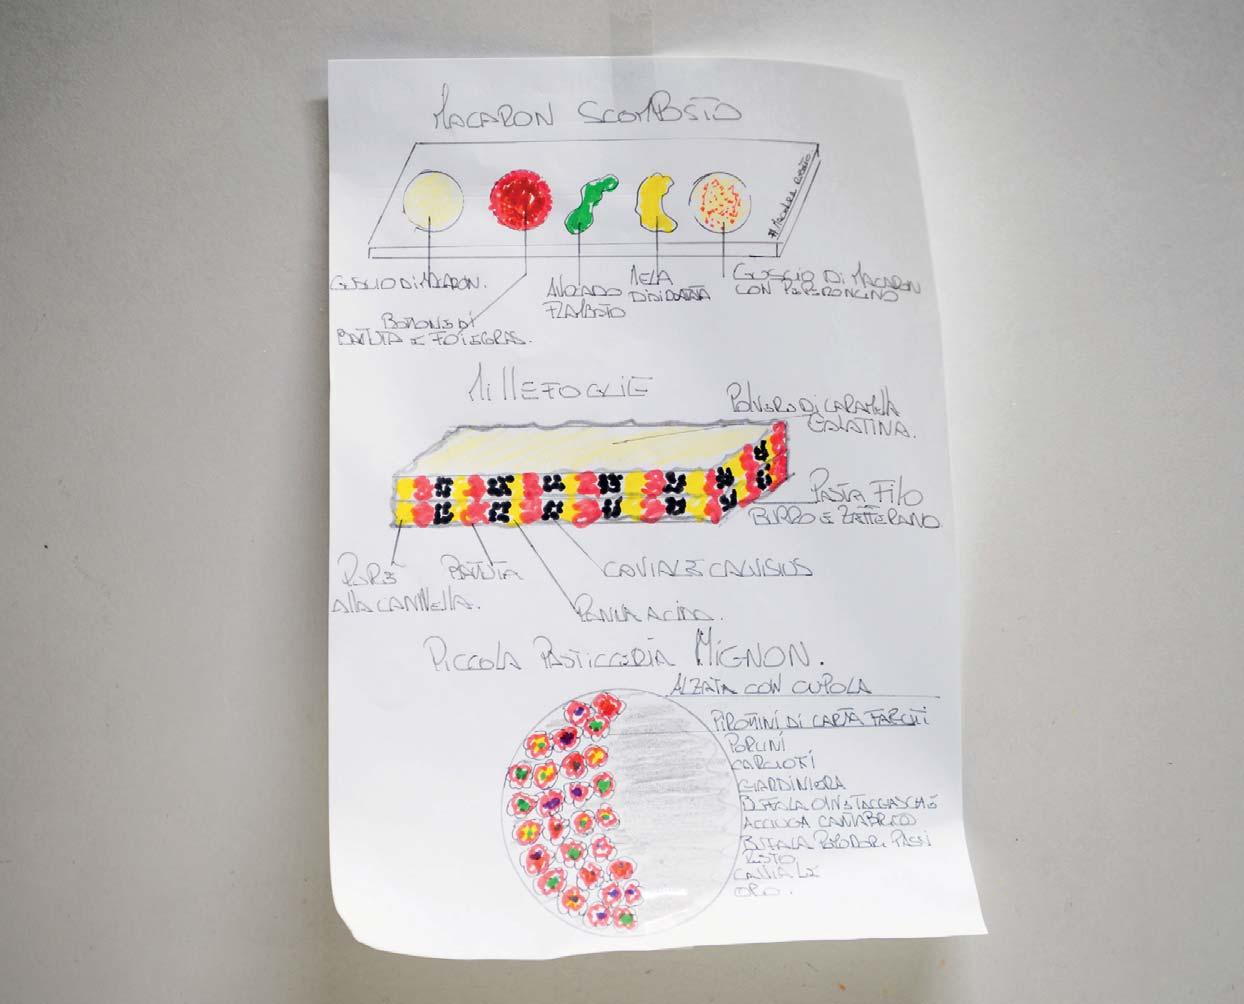 MACARON SCOMPOSTO
GUSCIO DI MACARON.
BOTTONE DI
BATTUTA E FOIEGRAS.
AVOCADO
FLAMBATO
MELA
DISIDRATATA
GUSCIO DI MACARON
CON PEPERONCINO
MillEFOGLIE
POLVERE DI CARAMELLA
GALATINA.
PASTA FILO
BURRO E ZAFFERANO
PURÈ
AllA CANNELLA.
BATTUTA
PANNA ACIDA.
CAVIALE CALVISIUS
PICCOLA PASTICCERIA MIGNON.
ALZATA CON CUPOLA
PIROTTINI DI CARTA FARCITI
PORCINI
CARCIOFI
GIARDINIERA
BUFALA OLIVE TAGGIASCHE
ACCIUGA CANTABRICO
BUFALA POMODORI PASSI
PESTO
CAVIALE
ORO.